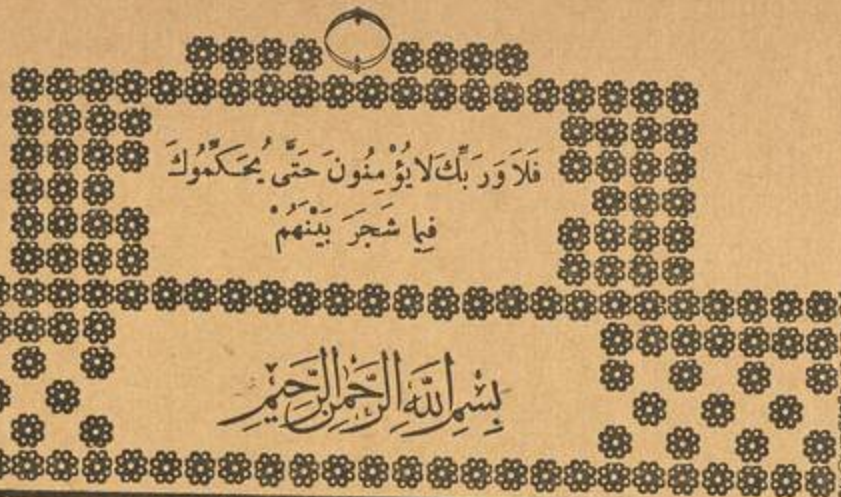 فَلَا وَرَبِّكَ لَا يُؤْمِنُونَ حَتَّى يُحَكِّمُوكَ
فِيمَا شَجَرَ بَيْنَهُمْ
بِسْمِ اللَّهِ الرَّحْمَنِ الرَّحِيمِ